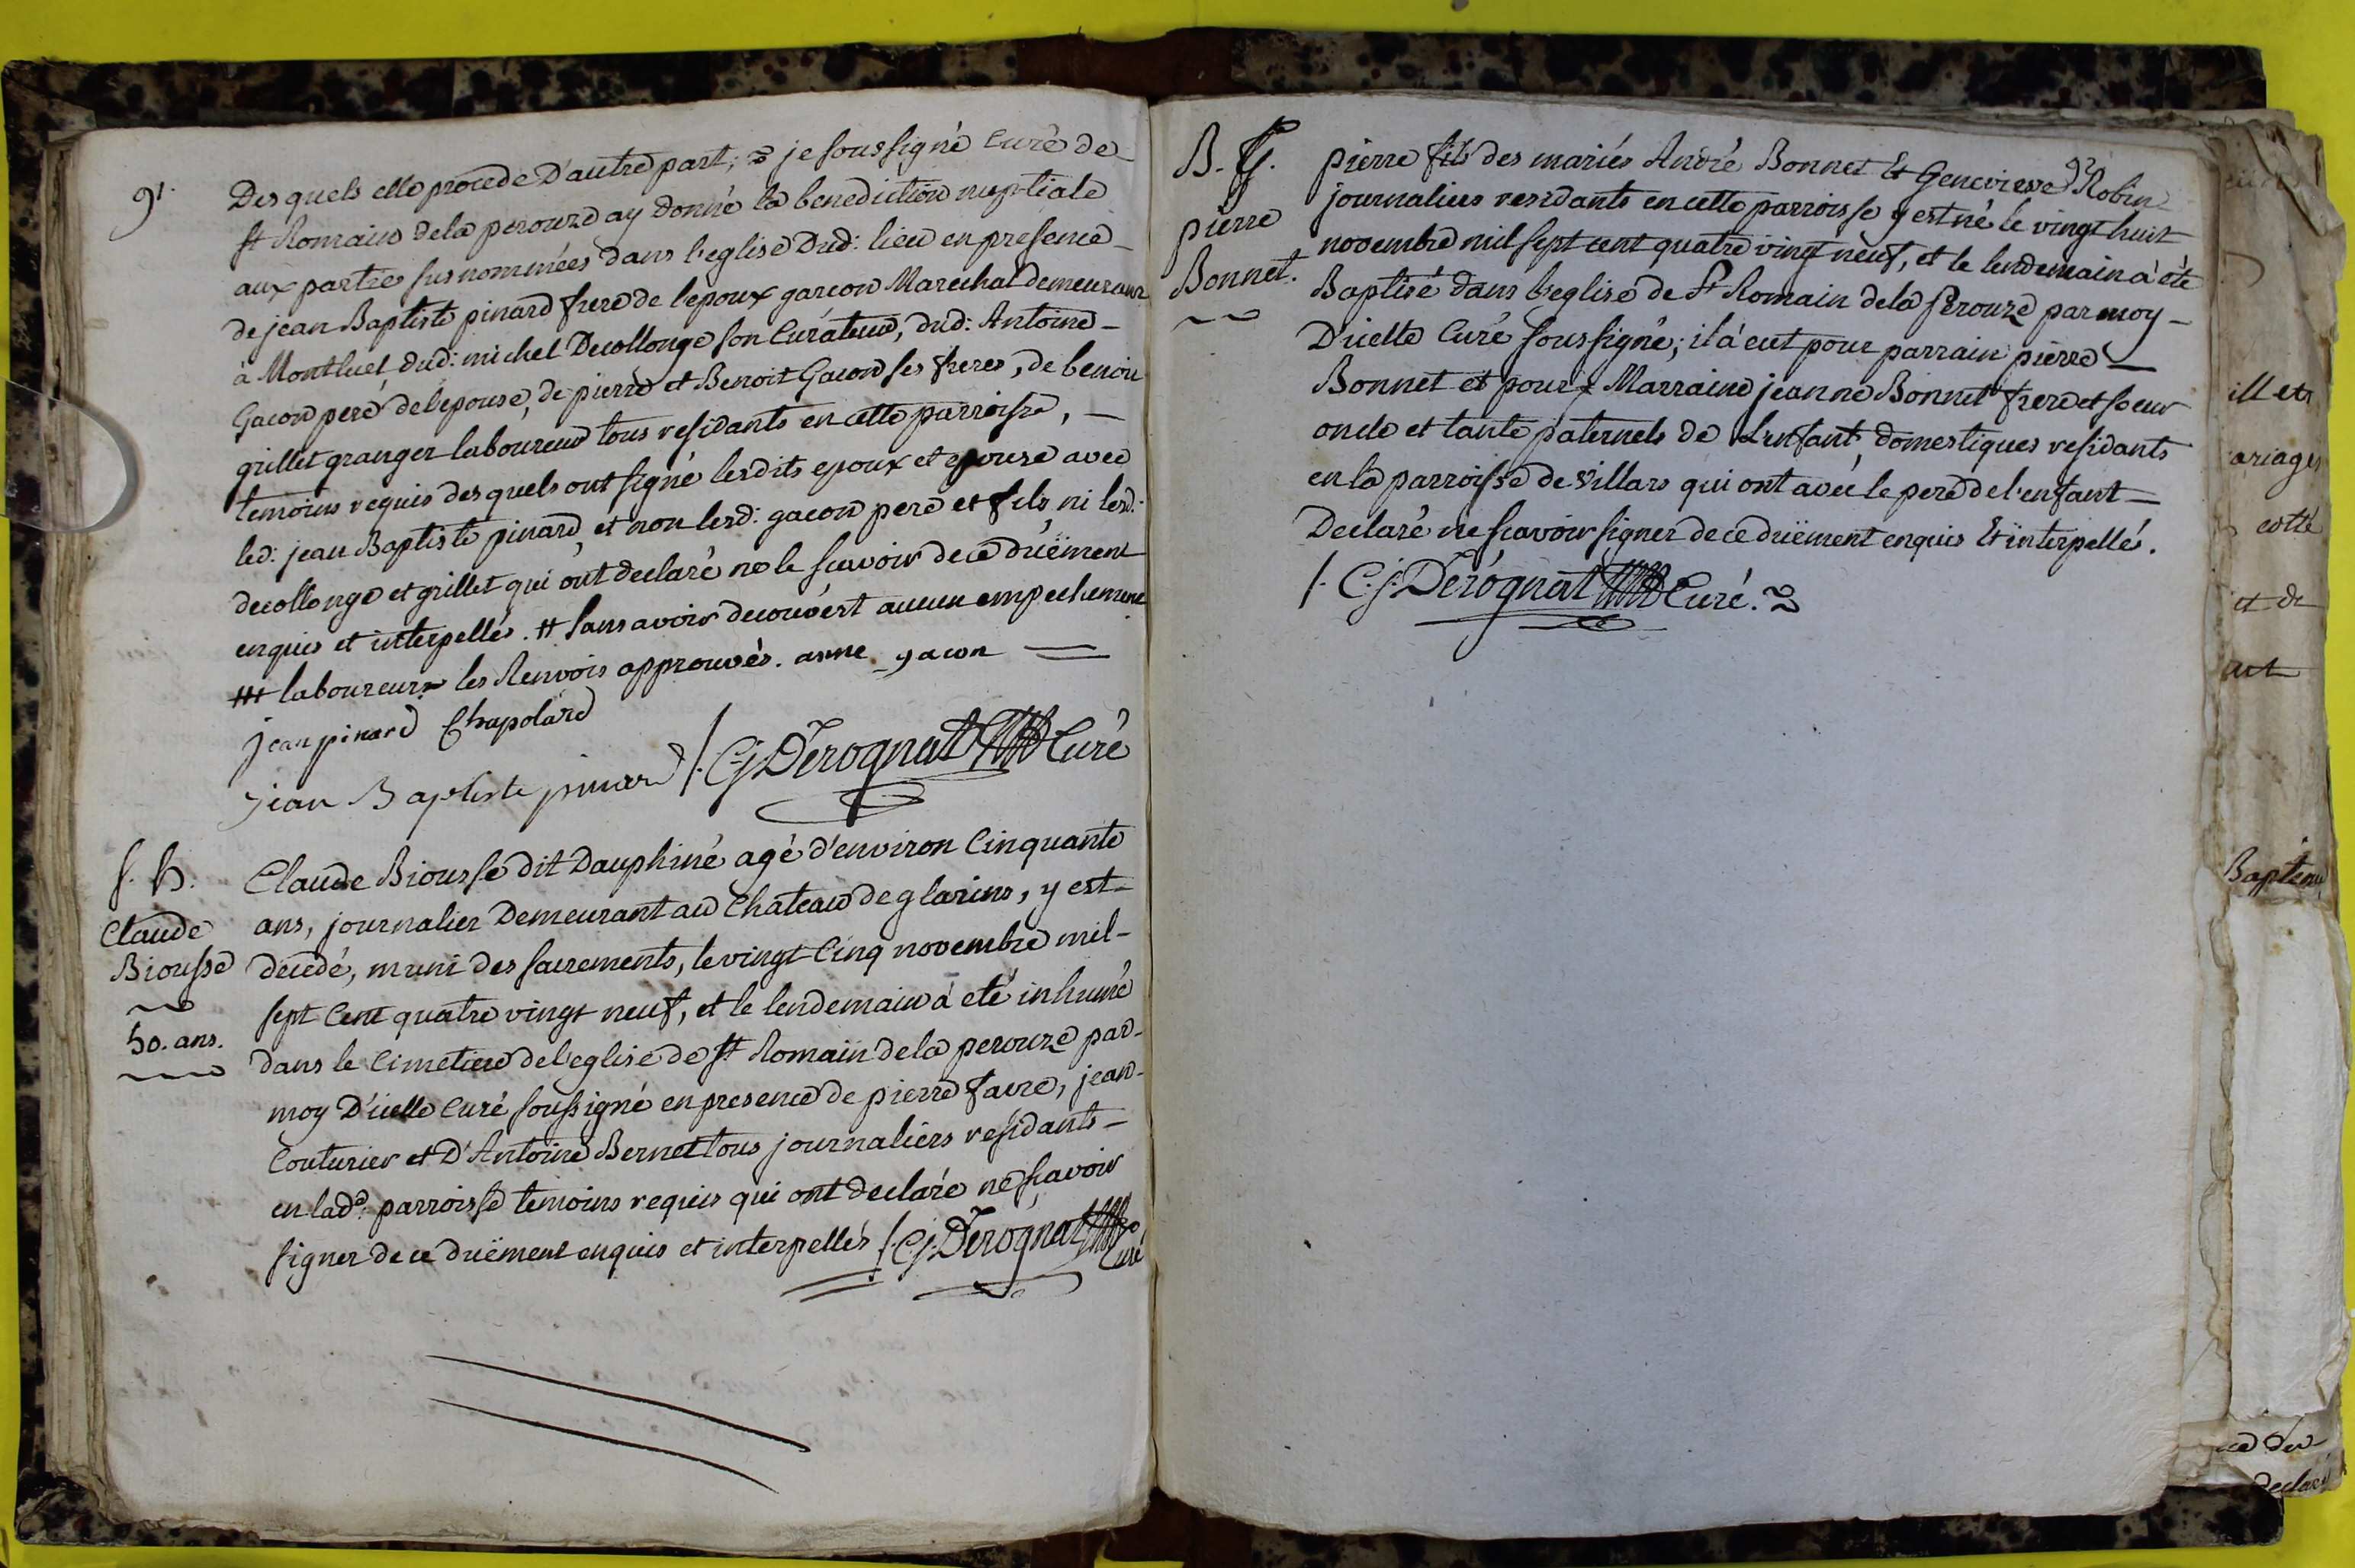 91.
Desquels elle procede D'autre part; je soussigné Curé de
St Romain dela perouze ay donné la benediction nuptiale
aux parties susnommées dans l'eglise Dud: lieu en presence
de jean Baptiste pinard frere de l'epoux garcon Marechal demeurant
à Montluel dud: michel Decollonge son Curateur, dud: Antoine
Gacon pere del'epouse, de pierre et Benoit Gacon ses freres, de benoit
grillet granger laboureur tous residants en cette parroisse,
temoins requis desquels ont signé lesdits epoux et epouse avec
led: jean Baptiste pinard, et non lesd: gacon pere et fils ni lesd:
decollonge et grillet qui ont declaré ne le scavoir de ce düement
enquis et interpellés. # sans avoir decouvert aucun empechement
## laboureurs les Renvois approuvés. anne gacon
jean pinard Chapolard
jean Baptiste pinard /. C. j. Derognat Curé
S. h.
Claude
Biousse
50. ans.
Claude Biousse dit Dauphiné agé d'environ Cinquante
ans, journalier Demeurant au Chateau de glarins, y est
decedé, muni des sacrements, le vingt Cinq novembre mil
sept Cent quatre vingt neuf, et le lendemain à eté inhumé
dans le Cimetiere del'eglise de St Romain dela perouze par
moy D'icelle Curé soussigné en presence de pierre favre, jean
Couturier et D'Antoine Bernet tous journaliers residants
en lade: parroisse temoins requis qui ont declaré ne scavoir
signer de ce düement enquis et interpellés /. C. j. Derognat
Curé
92
B. G.
pierre
Bonnet.
pierre fils des mariés André Bonnet Et Genevieve Robin
journaliers residants en cette parroisse y est né le vingt huit
novembre mil sept cent quatre vingt neuf, et le lendemain à èté
Baptisé dans l'eglise de St Romain dela Perouze par moy
D'icelle Curé soussigné; il à eut pour parrain pierre
Bonnet et pour Marraine jeanne Bonnet frere et soeur
oncle et tante paternels de L'enfant, domestiques residants
en la parroisse de villars qui ont avec le pere de l'enfant
Declaré ne scavoir signer de ce düement enquis Et interpellés.
/. C. j. Derognat Curé.
ill et
ariages
cotté
et de
Bapteme
Declaré